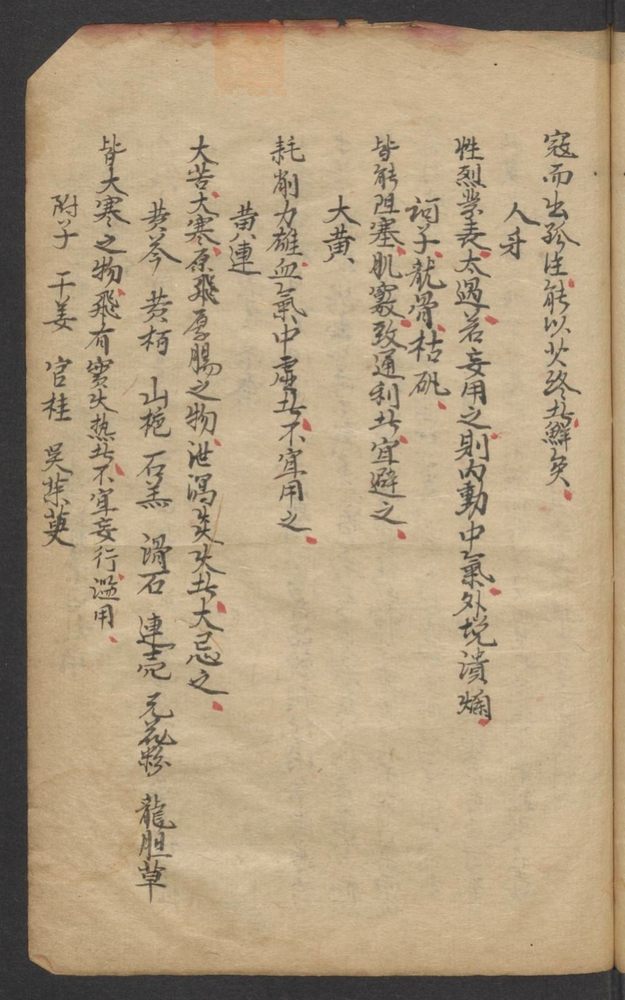 寇而出孤注能以火終者鮮矣
人牙
性烈發表太過若妄用之則内動中氣外潰爛
訶子龍骨枯矾
皆能阻塞肌竅致通利者宜避之
大黄
耗削力雄血氣中虚者不宜用之
黄連
大苦大寒原飛厚腸之物泄瀉炎火者大忌之
黄芩 黄柯 山栀 石羔 滑石 連売 元花粉 龍胆草
皆大寒之物飛有實火热者不宜妄行滥用
附子 干姜 官桂 吴茱萸